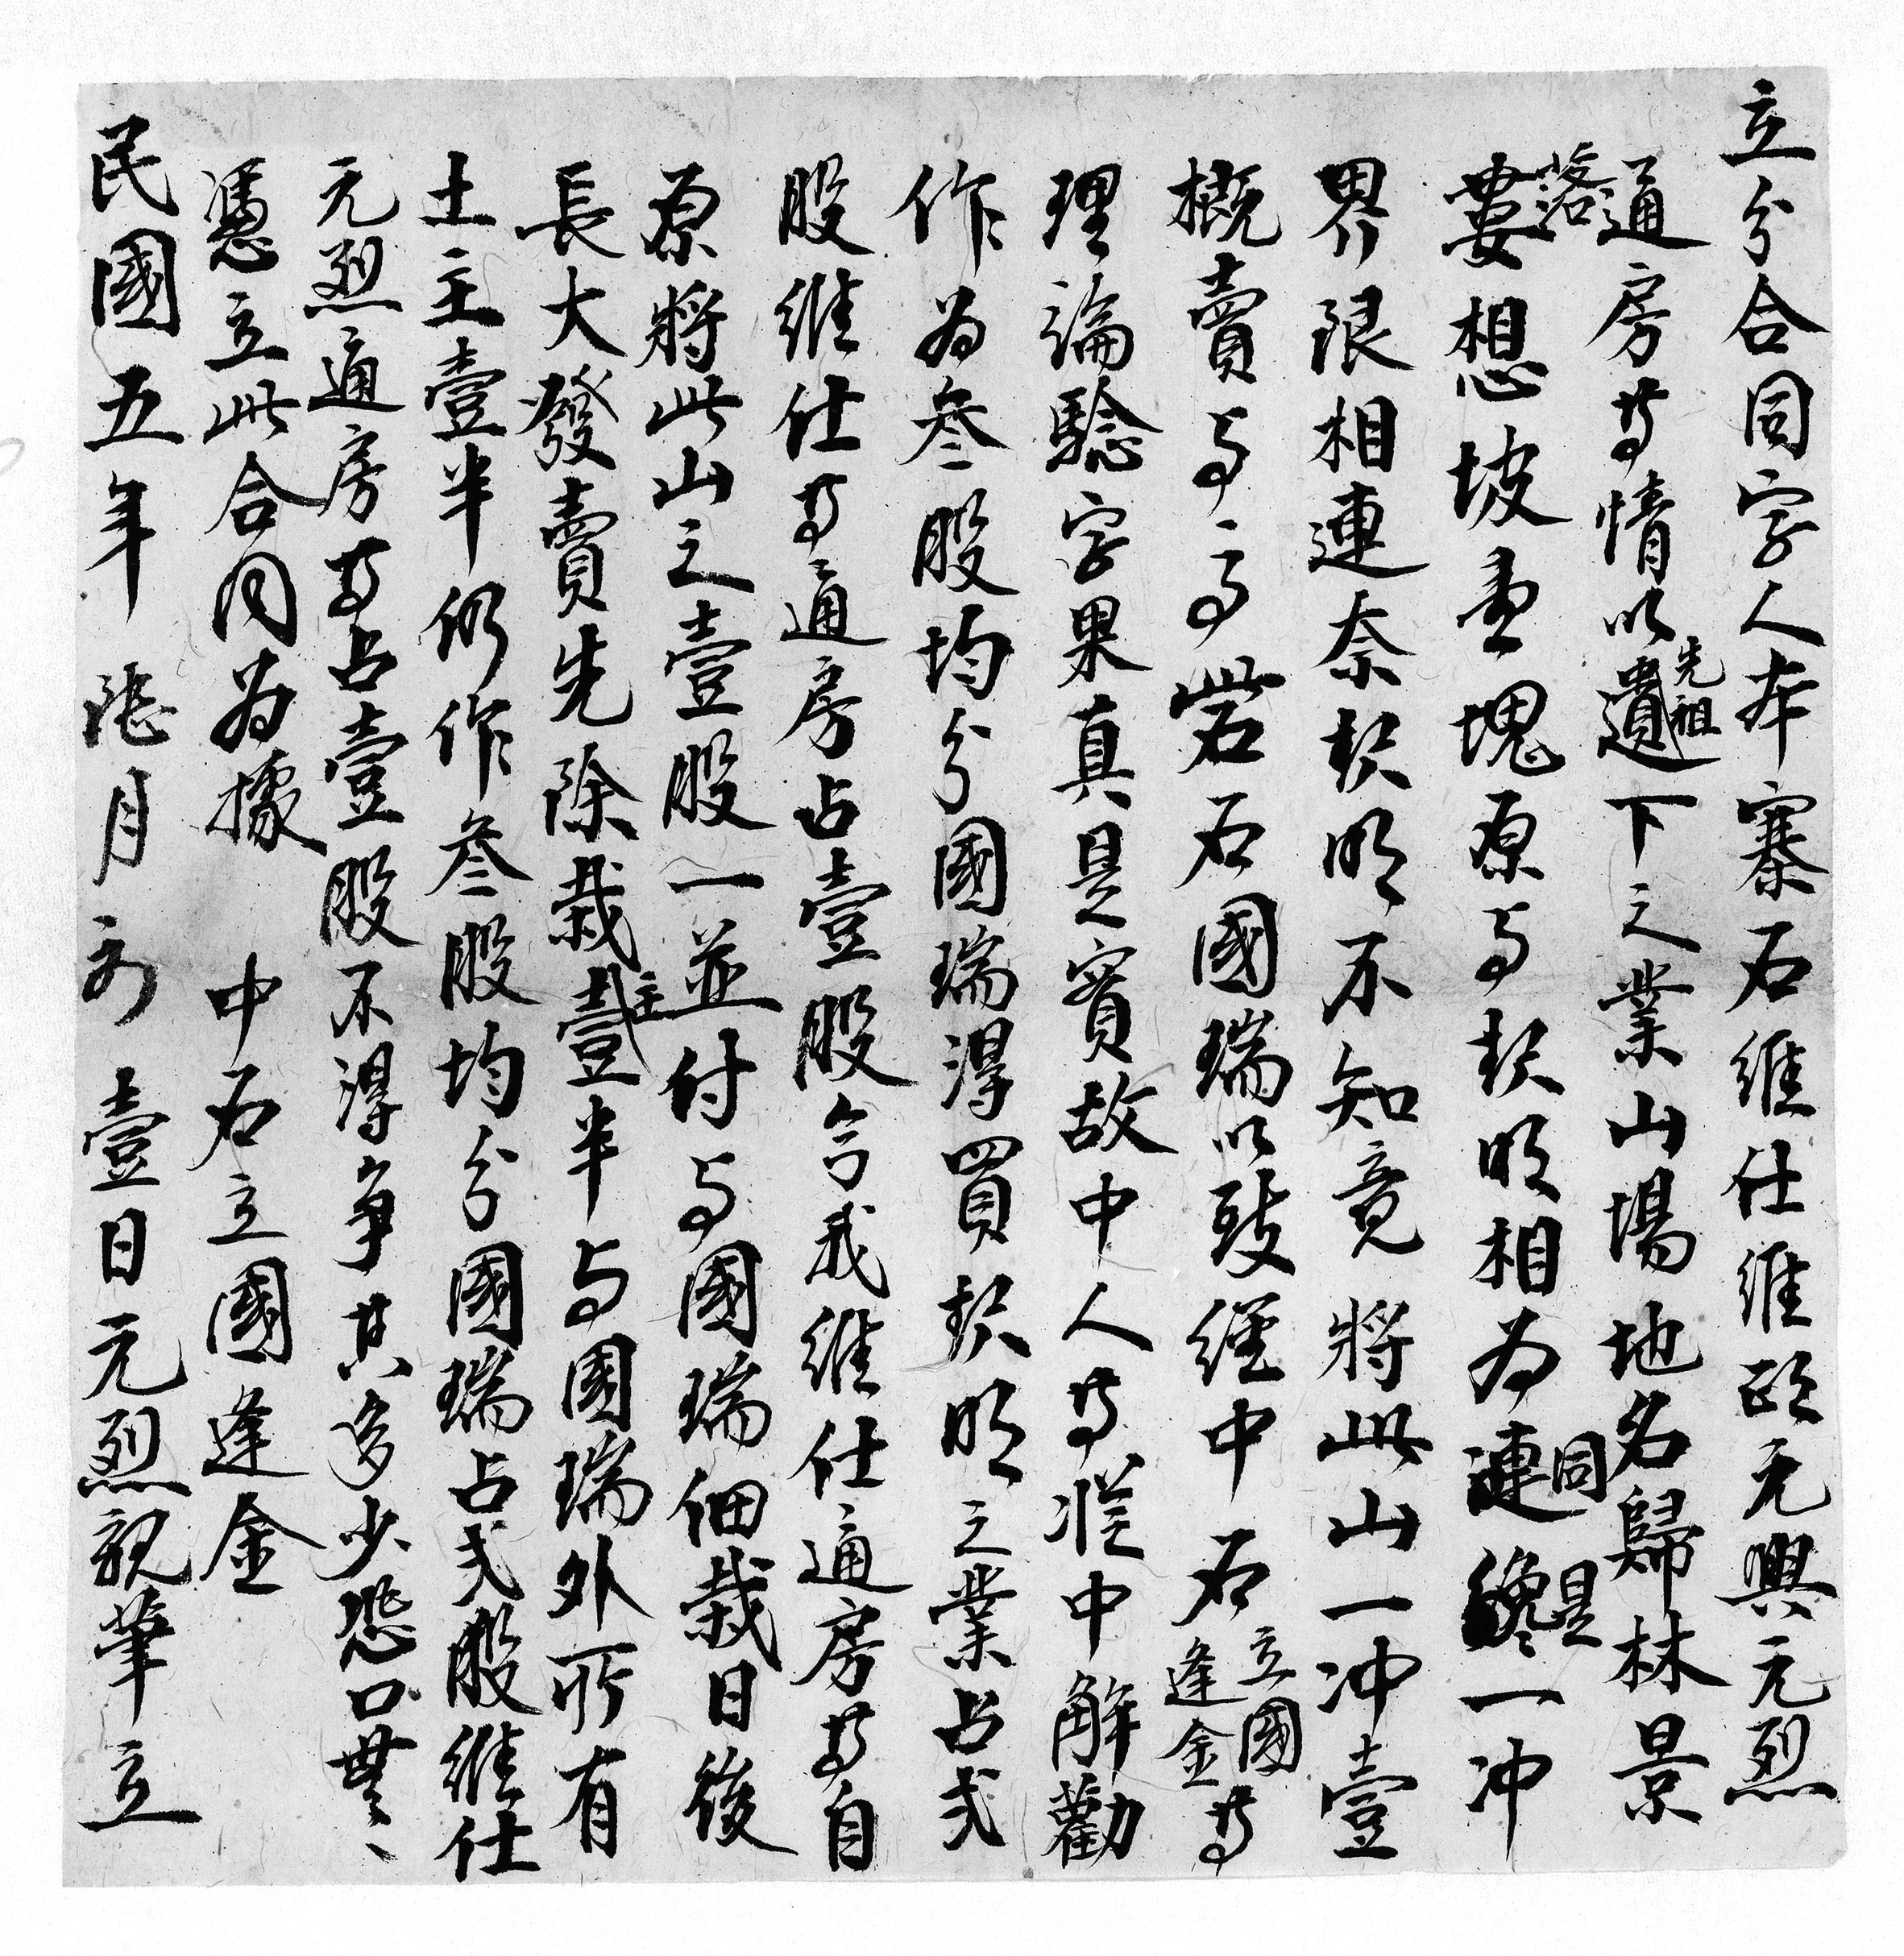 立分合同字人本寨石維仕維政元興元烈
通房等情以先祖遺下之業山場地名歸林景
落婁想坡壹塊原与契明相為連同是一冲
界限相連奈契明不知竟將此山一冲壹
概賣与高岩石國瑞以致經中石立國逢金等
理論驗字果真是實故中人等從中解勸
作為叁股均分國瑞淂買契明之業占弍
股維仕等通房占壹股言我維仕通房等自
原將此山之壹股一並付与國瑞佃栽日後
長大發賣先除栽主壹半与國瑞外所有
土主壹半仍作叁股均分國瑞占弍股維仕
元烈通房等占壹股不淂争其多少恐口無
憑立此合同為據 中石立國逢金
民國五年 月 壹日元烈親筆立